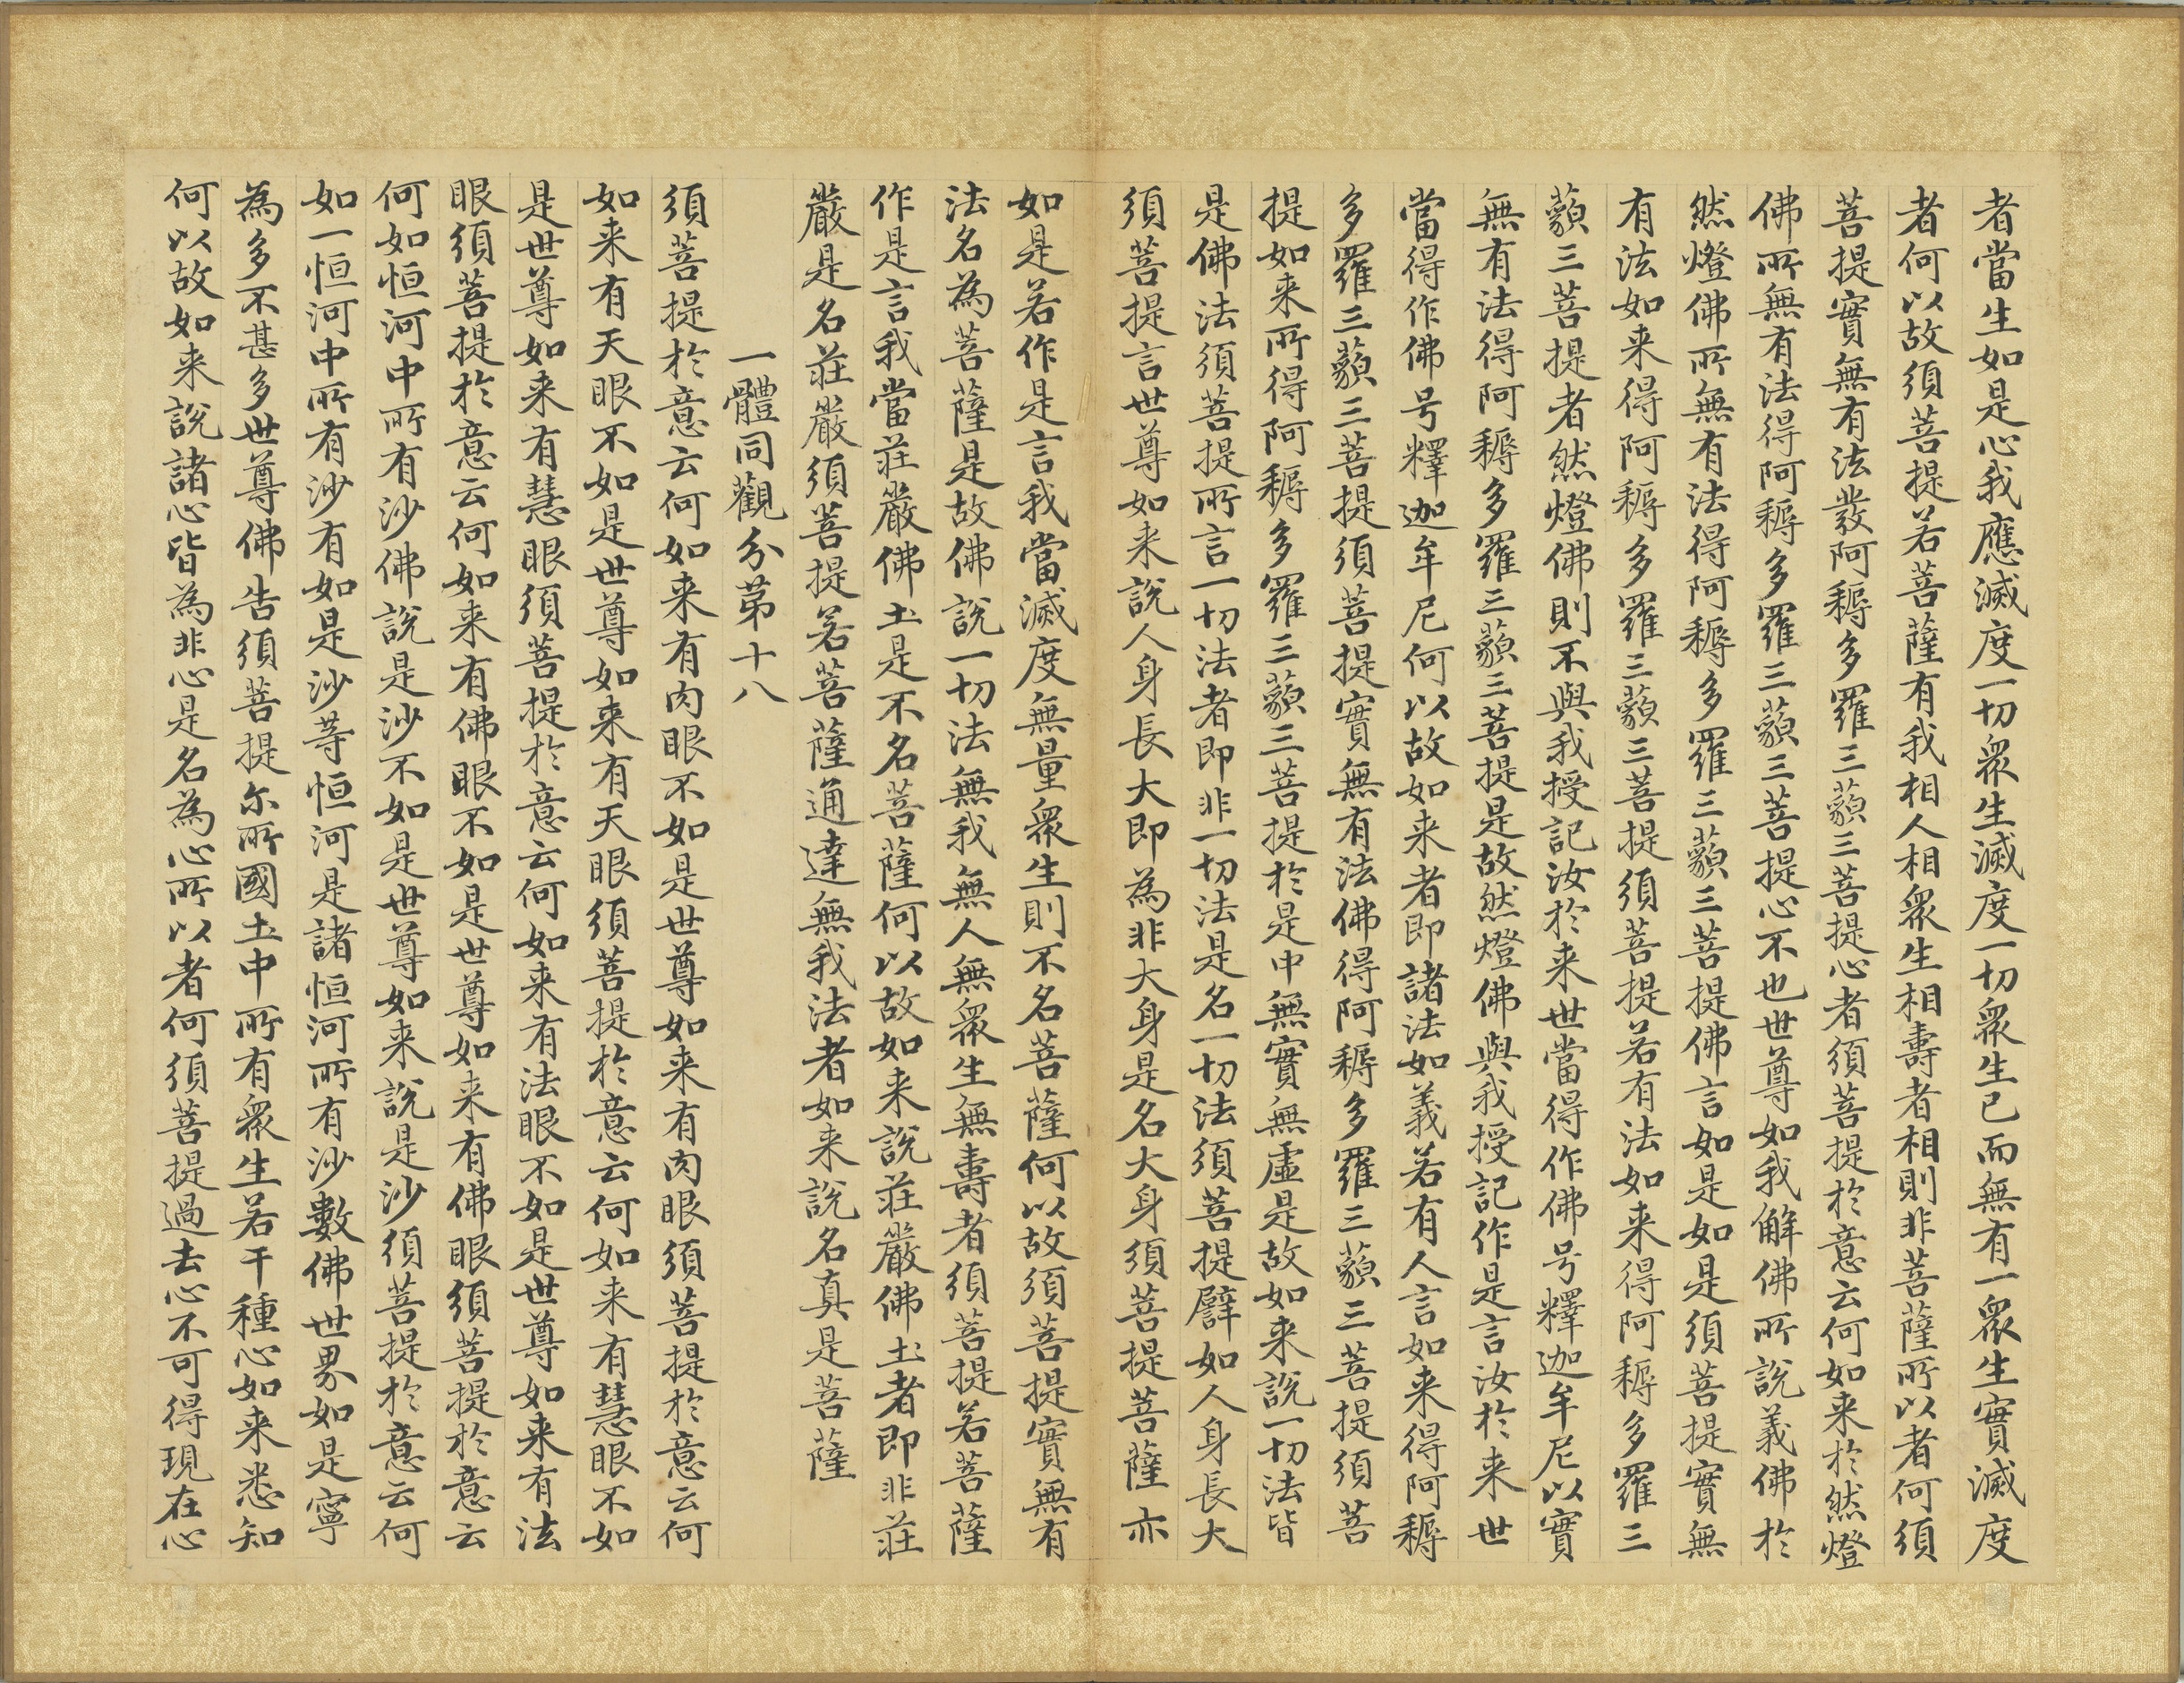 者當生如是心我應滅度一切衆生滅度一切衆生已而無有一衆生實滅度
者何以故須菩提若菩薩有我相人相衆生相壽者相則非菩薩所以者何須
菩提實無有法發阿耨多羅三藐三菩提心者須菩提於意云何如来於然燈
佛所無有法得阿耨多羅三藐三菩提心不也世尊如我解佛所說義佛於
然燈佛所無有法得阿耨多羅三藐三菩提佛言如是如是須菩提實無
有法如来得阿耨多羅三藐三菩提須菩提若有法如来得阿耨多羅三
藐三菩提者然燈佛則不與我授記汝於来世當得作佛号釋迦牟尼以實
無有法得阿耨多羅三藐三菩提是故然燈佛與我授記作是言汝於来世
當得作佛号釋迦牟尼何以故如来者即諸法如義若有人言如来得阿耨
多羅三藐三菩提須菩提實無有法佛得阿耨多羅三藐三菩提須菩
提如来所得阿耨多羅三藐三菩提於是中無實無虛是故如来說一切法皆
是佛法須菩提所言一切法者即非一切法是名一切法須菩提譬如人身長大
須菩提言世尊如来說人身長大即為非大身是名大身須菩提菩薩亦
如是若作是言我當滅度無量衆生則不名菩薩何以故須菩提實無有
法名為菩薩是故佛說一切法無我無人無衆生無壽者須菩提若菩薩
作是言我當莊嚴佛土是不名菩薩何以故如来說莊嚴佛土者即非莊
嚴是名莊嚴須菩提若菩薩通達無我法者如来說名真是菩薩
一體同觀分第十八
須菩提於意云何如来有肉眼不如是世尊如来有肉眼須菩提於意云何
如来有天眼不如是世尊如来有天眼須菩提於意云何如来有慧眼不如
是世尊如来有慧眼須菩提於意云何如来有法眼不如是世尊如来有法
眼須菩提於意云何如来有佛眼不如是世尊如来有佛眼須菩提於意云
何如恒河中所有沙佛說是沙不如是世尊如来說是沙須菩提於意云何
如一恒河中所有沙有如是沙等恒河是諸恒河所有沙數佛世界如是寧
為多不甚多世尊佛告須菩提尔所國土中所有衆生若干種心如来悉知
何以故如来說諸心皆為非心是名為心所以者何須菩提過去心不可得現在心